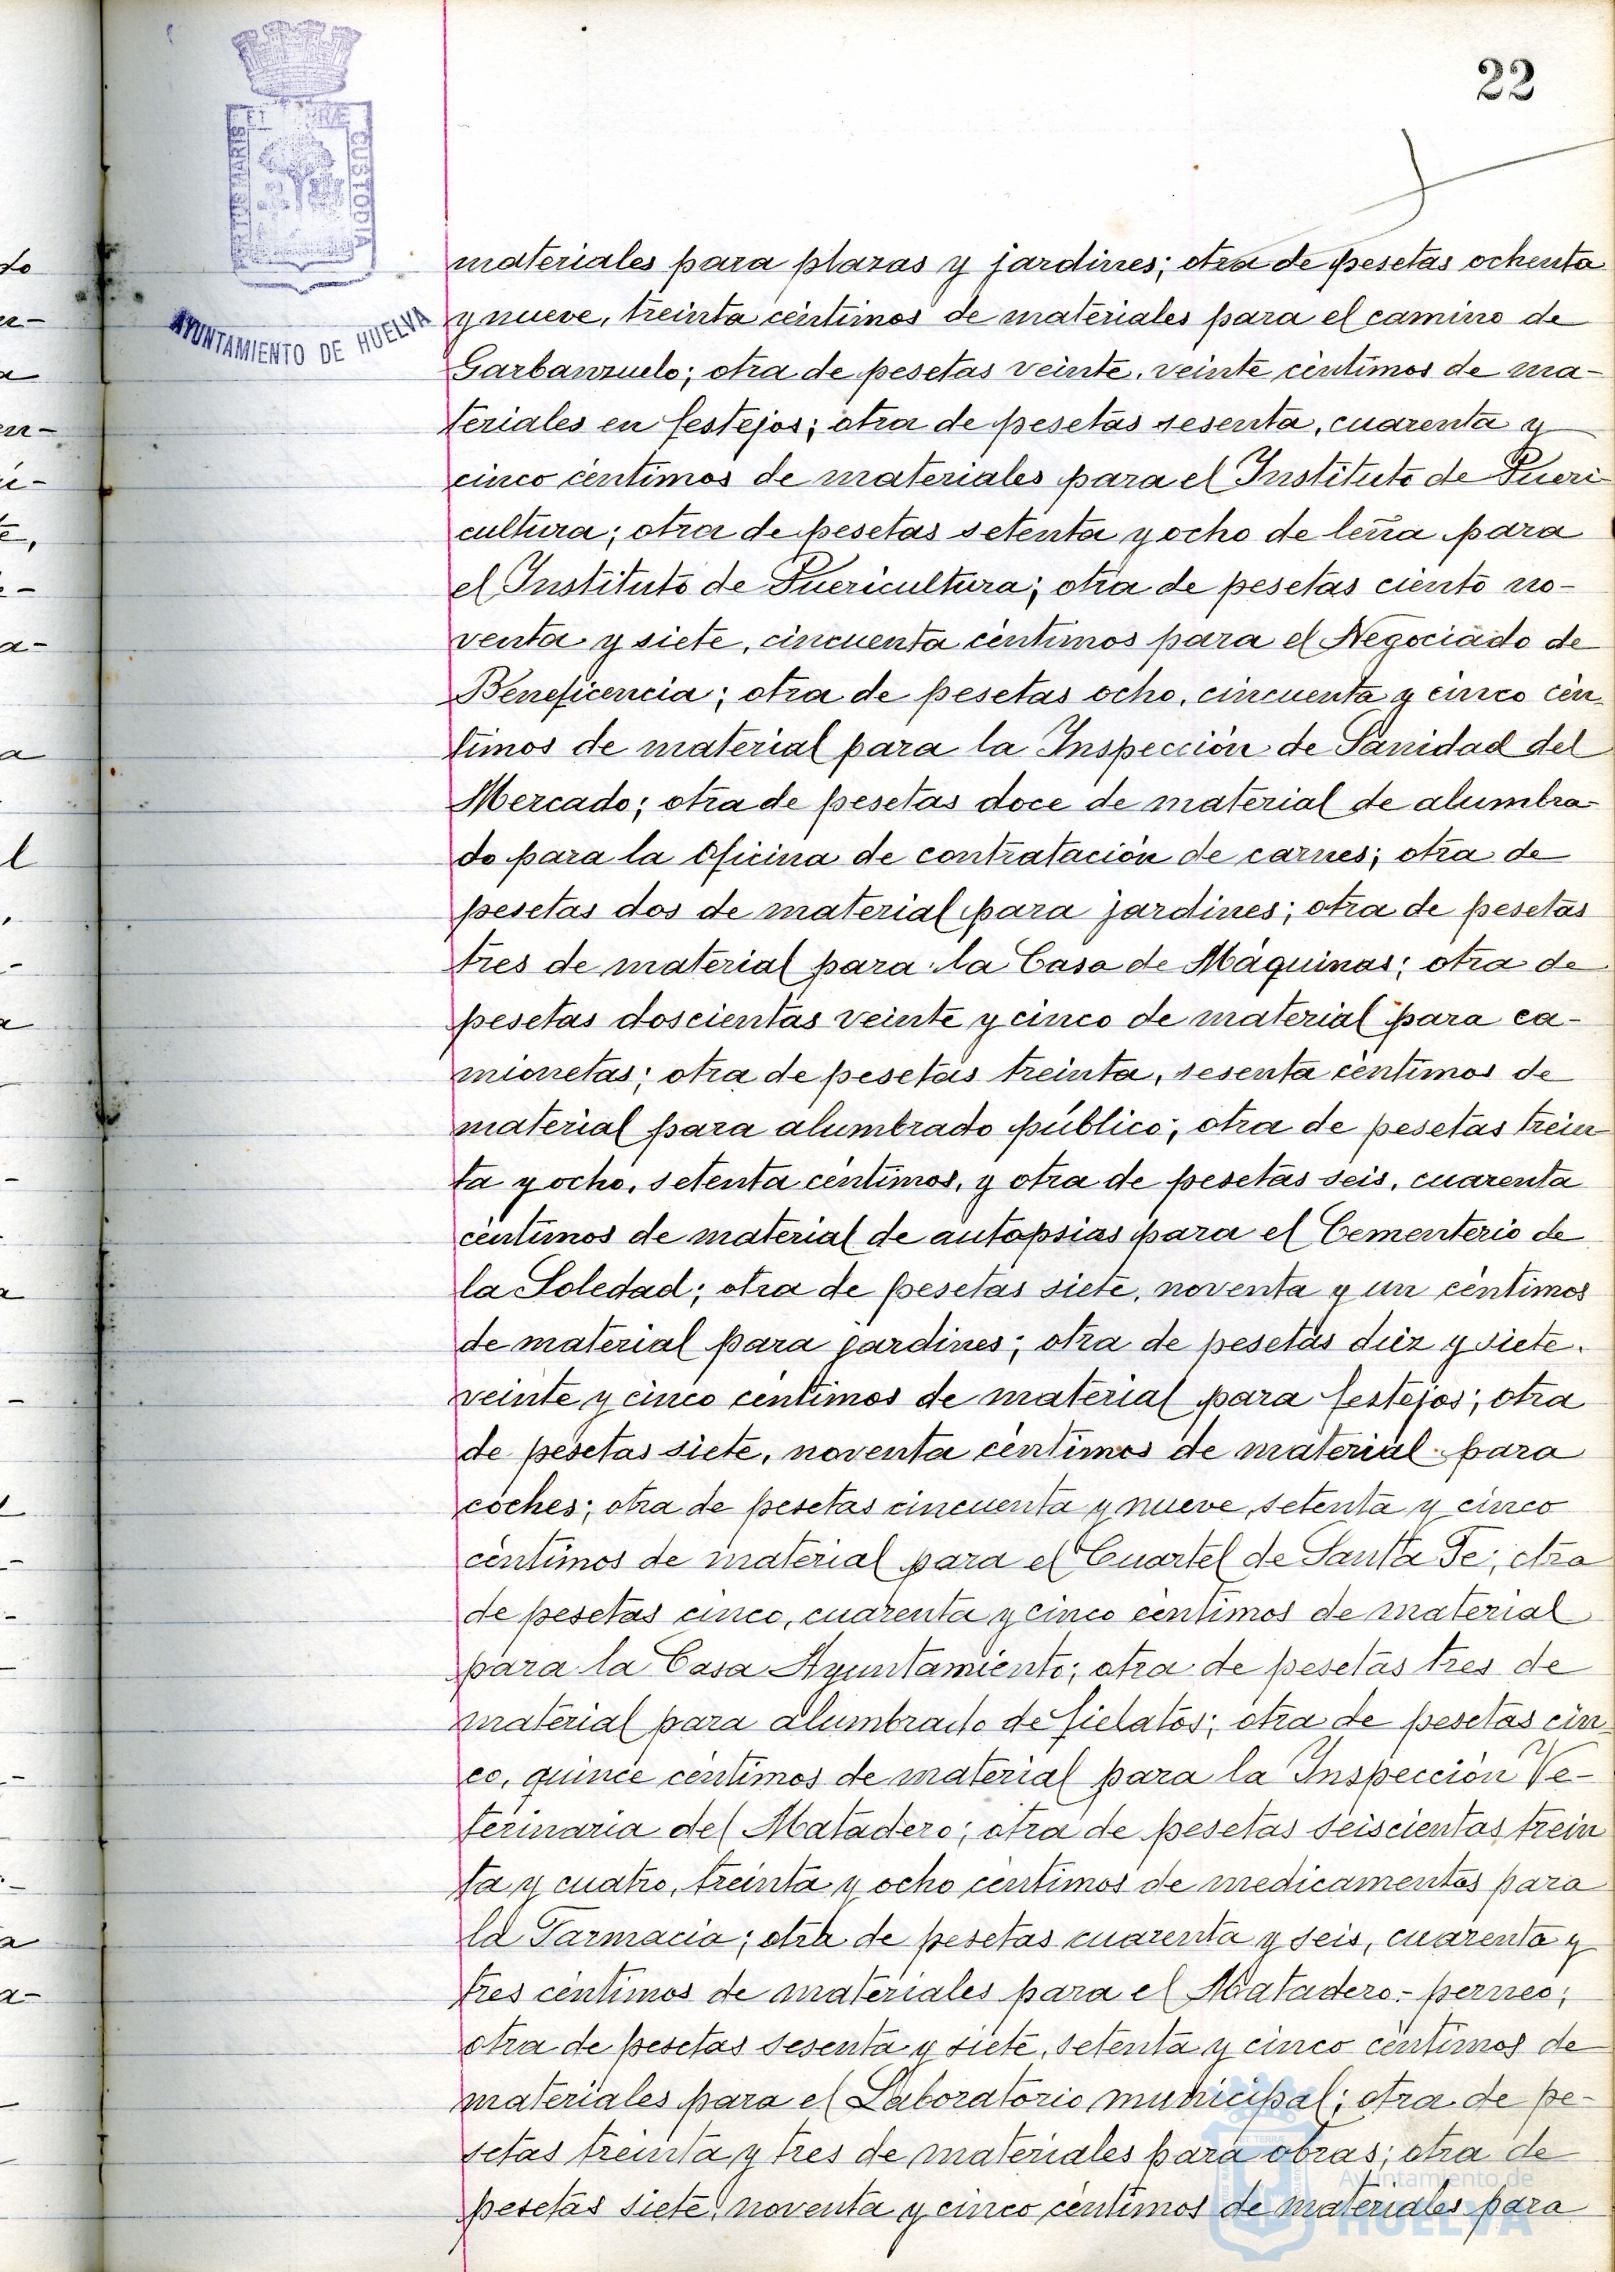 22
PORTUS MARIS ET TERRÆ CUSTODIA
AYUNTAMIENTO DE HUELVA
materiales para plazas y jardines; otra de pesetas ochenta
y nueve, treinta céntimos de materiales para el camino de
Garbanzuelo; otra de pesetas veinte, veinte céntimos de ma-
teriales en festejos; otra de pesetas sesenta, cuarenta y
cinco céntimos de materiales para el Instituto de Pueri
cultura; otra de pesetas setenta y ocho de leña para
el Instituto de Puericultura; otra de pesetas ciento no-
venta y siete, cincuenta céntimos para el Negociado de
Beneficencia; otra de pesetas ocho, cincuenta y cinco cén-
timos de material para la Inspección de Sanidad del
Mercado; otra de pesetas doce de material de alumbra-
do para la Oficina de contratación de carnes; otra de
pesetas dos de material para jardines; otra de pesetas
tres de material para la Casa de Máquinas; otra de
pesetas doscientas veinte y cinco de material para ca-
mionetas; otra de pesetas treinta, sesenta céntimos de
material para alumbrado público; otra de pesetas trein
ta y ocho, setenta céntimos, y otra de pesetas seis, cuarenta
céntimos de material de autopsias para el Cementerio de
la Soledad; otra de pesetas siete, noventa y un céntimos
de material para jardines; otra de pesetas diez y siete,
veinte y cinco céntimos de material para festejos; otra
de pesetas siete, noventa céntimos de material para
coches; otra de pesetas cincuenta y nueve, setenta y cinco
céntimos de material para el Cuartel de Santa Fe; otra
de pesetas cinco, cuarenta y cinco céntimos de material
para la Casa Ayuntamiento; otra de pesetas tres de
material para alumbrado de fielatos; otra de pesetas cin-
co, quince céntimos de material para la Inspección Ve-
terinaria del Matadero; otra de pesetas seiscientas trein
ta y cuatro, treinta y ocho céntimos de medicamentos para
la Farmacia; otra de pesetas cuarenta y seis, cuarenta y
tres céntimos de materiales para el Matadero-perneo;
otra de pesetas sesenta y siete, setenta y cinco céntimos de
materiales para el Laboratorio municipal; otra de pe-
setas treinta y tres de materiales para obras; otra de
pesetas siete, noventa y cinco céntimos de materiales para
Ayuntamiento de
HUELVA